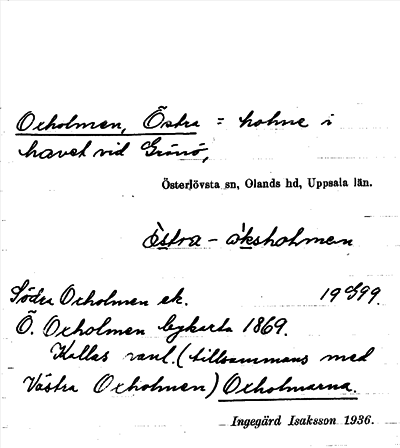 Oxholmen, Östra = holme i
havet vid Gräsö,
Österlövsta sn, Olands hd, Uppsala län.
östra - oksholmen
Södra Oxholmen ek. 19 G 99.
Ö. Oxholmen lagkarta 1869.
Kallas vanl. (tillsammans med
Västra Oxholmen) Oxholmarna.
Ingegärd Isaksson 1936.